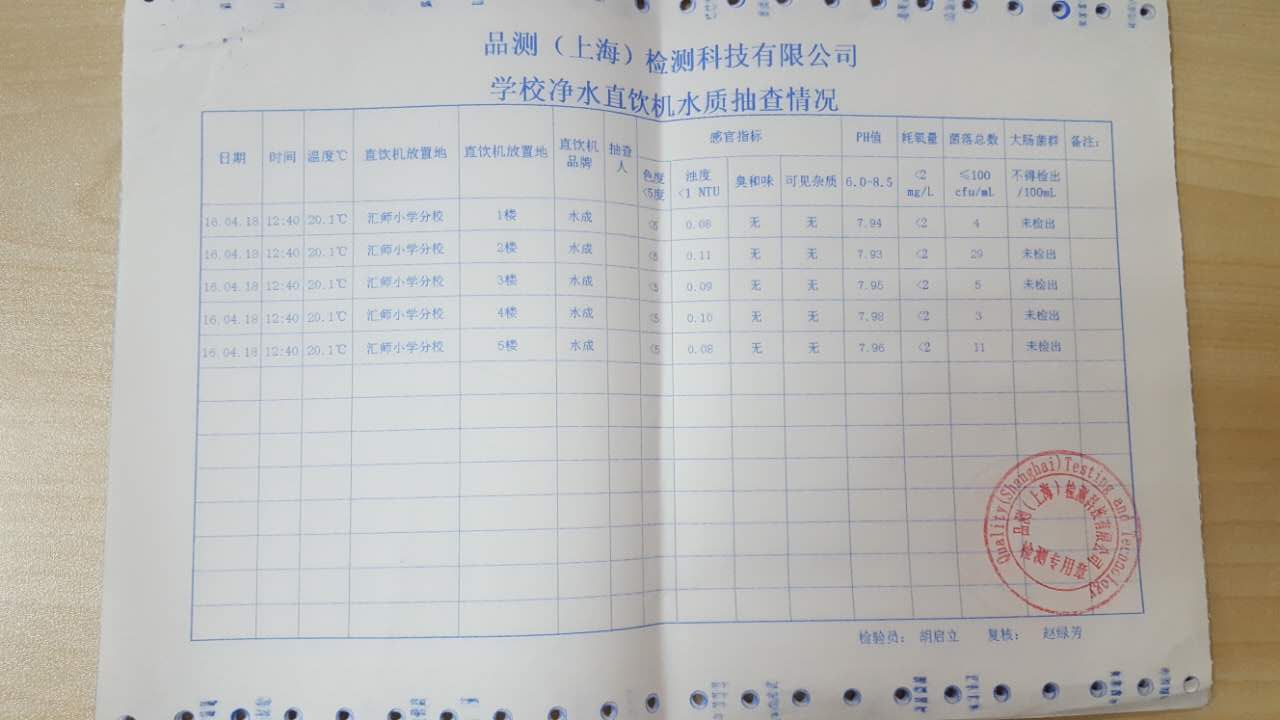 品测（上海）检测科技有限公司
学校净水直饮机水质抽查情况
日期 时间 温度℃ 直饮机放置地 直饮机放置地 直饮机品牌 抽查人 感官指标 PH值 耗氧量 菌落总数 大肠菌群 备注:
色度<5度 浊度<1 NTU 臭和味 可见杂质 6.0-8.5 <2 mg/L ≤100 cfu/mL 不得检出/100mL
16.04.18 12:40 20.1℃ 汇师小学分校 1楼 水成 <5 0.08 无 无 7.94 <2 4 未检出
16.04.18 12:40 20.1℃ 汇师小学分校 2楼 水成 <5 0.11 无 无 7.93 <2 29 未检出
16.04.18 12:40 20.1℃ 汇师小学分校 3楼 水成 <5 0.09 无 无 7.95 <2 5 未检出
16.04.18 12:40 20.1℃ 汇师小学分校 4楼 水成 <5 0.10 无 无 7.98 <2 3 未检出
16.04.18 12:40 20.1℃ 汇师小学分校 5楼 水成 <5 0.08 无 无 7.96 <2 11 未检出
Quality(Shanghai)Testing and Tecnology
品测（上海）检测科技有限公司
检测专用章
检验员： 胡启立 复核： 赵绿芳